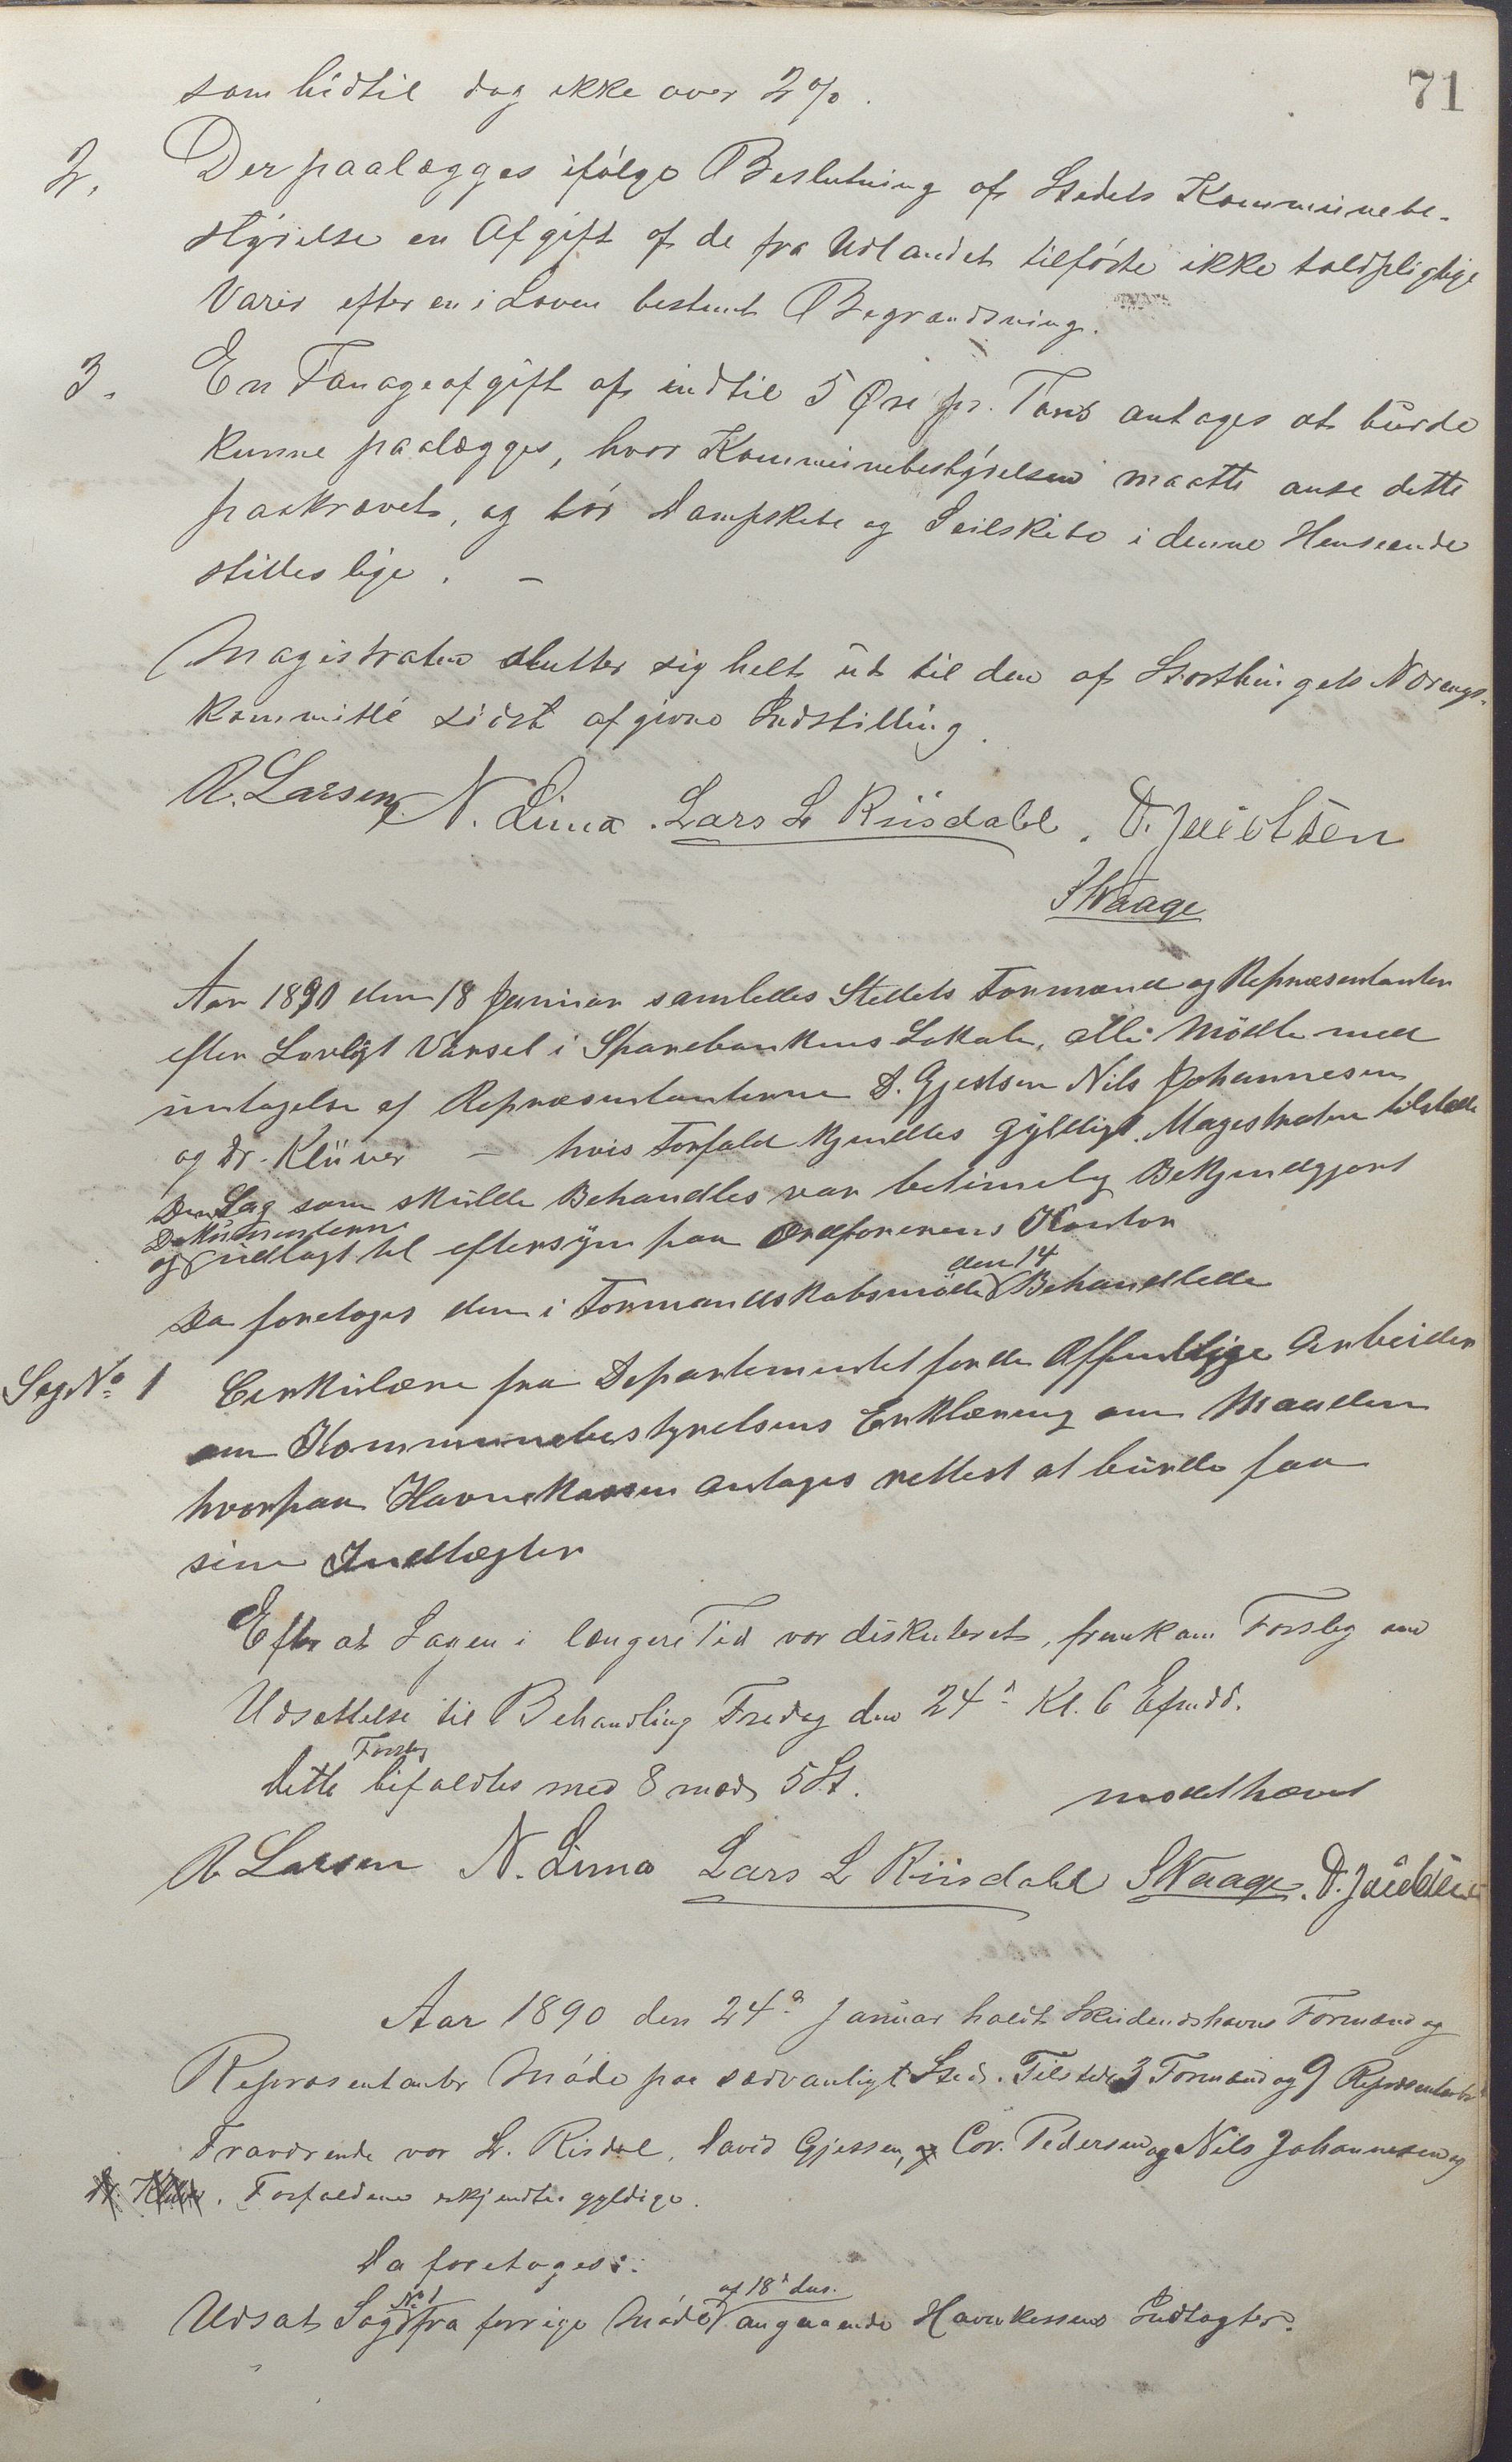 71
som hidtil dog ikke over 2 %.
2. Der paalægges ifølge Beslutning af Stedets Kommunebe-
styrelse en Afgift af de fra Udlandet tilførte ikke toldpligtige
Varer efter en i Loven bestemt Begrændsning.
3. En Tonageafgift af indtil 5 Øre pr. Tons antages at burde
kunne paalægges, hvor Kommunebestyrelsen maatte anse dette
paakrævet, og bør Dampskibe og Seilskibe i denne Henseende
stilles lige. –
Magistraten slutter sig helt ut til den af Storthingets Nærings-
kommitté sidst afgivne Indstilling.
R. Larsen N. Lima. Lars L Riisdahl. D. Jacobsen
S Waage
Aar 1890 den 18 Januar samledes Stedets Formænd og Repræsentanter
efter Lovligt Varsel i Sparebankens Lokale, alle Mødte med
untagelse af Repræsentanterne D. Gjedsen Nils Johannesen
og Dr. Klüver – hvis Forfald kjendtes Gyldigt. Magestraten tilstede
Den Sag som skulde Behandles var betimelig Bekjendtgjort
Dokumenterne
og udlagt til eftersyn paa Ordførerens Kontor
den 14
Da foretoges den i Formandskabsmøde Behandlede
Sag No 1 Cirkulære fra Departementet for de Offentlige Arbeider
om Kommunebestyrelsens Erklæring om Maaden
hvorpaa Havnekassen antages rettest at burde faa
sine Indtægter
Efter at Sagen i længere Tid var diskuteret, fremkom Forslag om
Udsættelse til Behandling Fredag den 24de Kl. 6 Efmdd.
Forslag
Dette bifaldtes med 8 mod 5 St. mødet hævet
R Larsen N. Lima Lars L Riisdahl S Waage. D. Jacobsen
Aar 1890 den 24de Januar holdt Skudeneshavns Formænd og
Repræsentanter Møde paa sædvanligt Sted. Tilstede 3 Formænd og 9 Repræsentanter
Fraværende var L. Risdal, David Gjessen, og Cor. Pedersen og Nils Johannesen og
Dr. Klüver. Forfaldene erkjendtes gyldige.
Da foretoges:
No 1 af 18de ds.
Udsat Sag fra forrige Møde angaaende Havnekassens Indtægter.